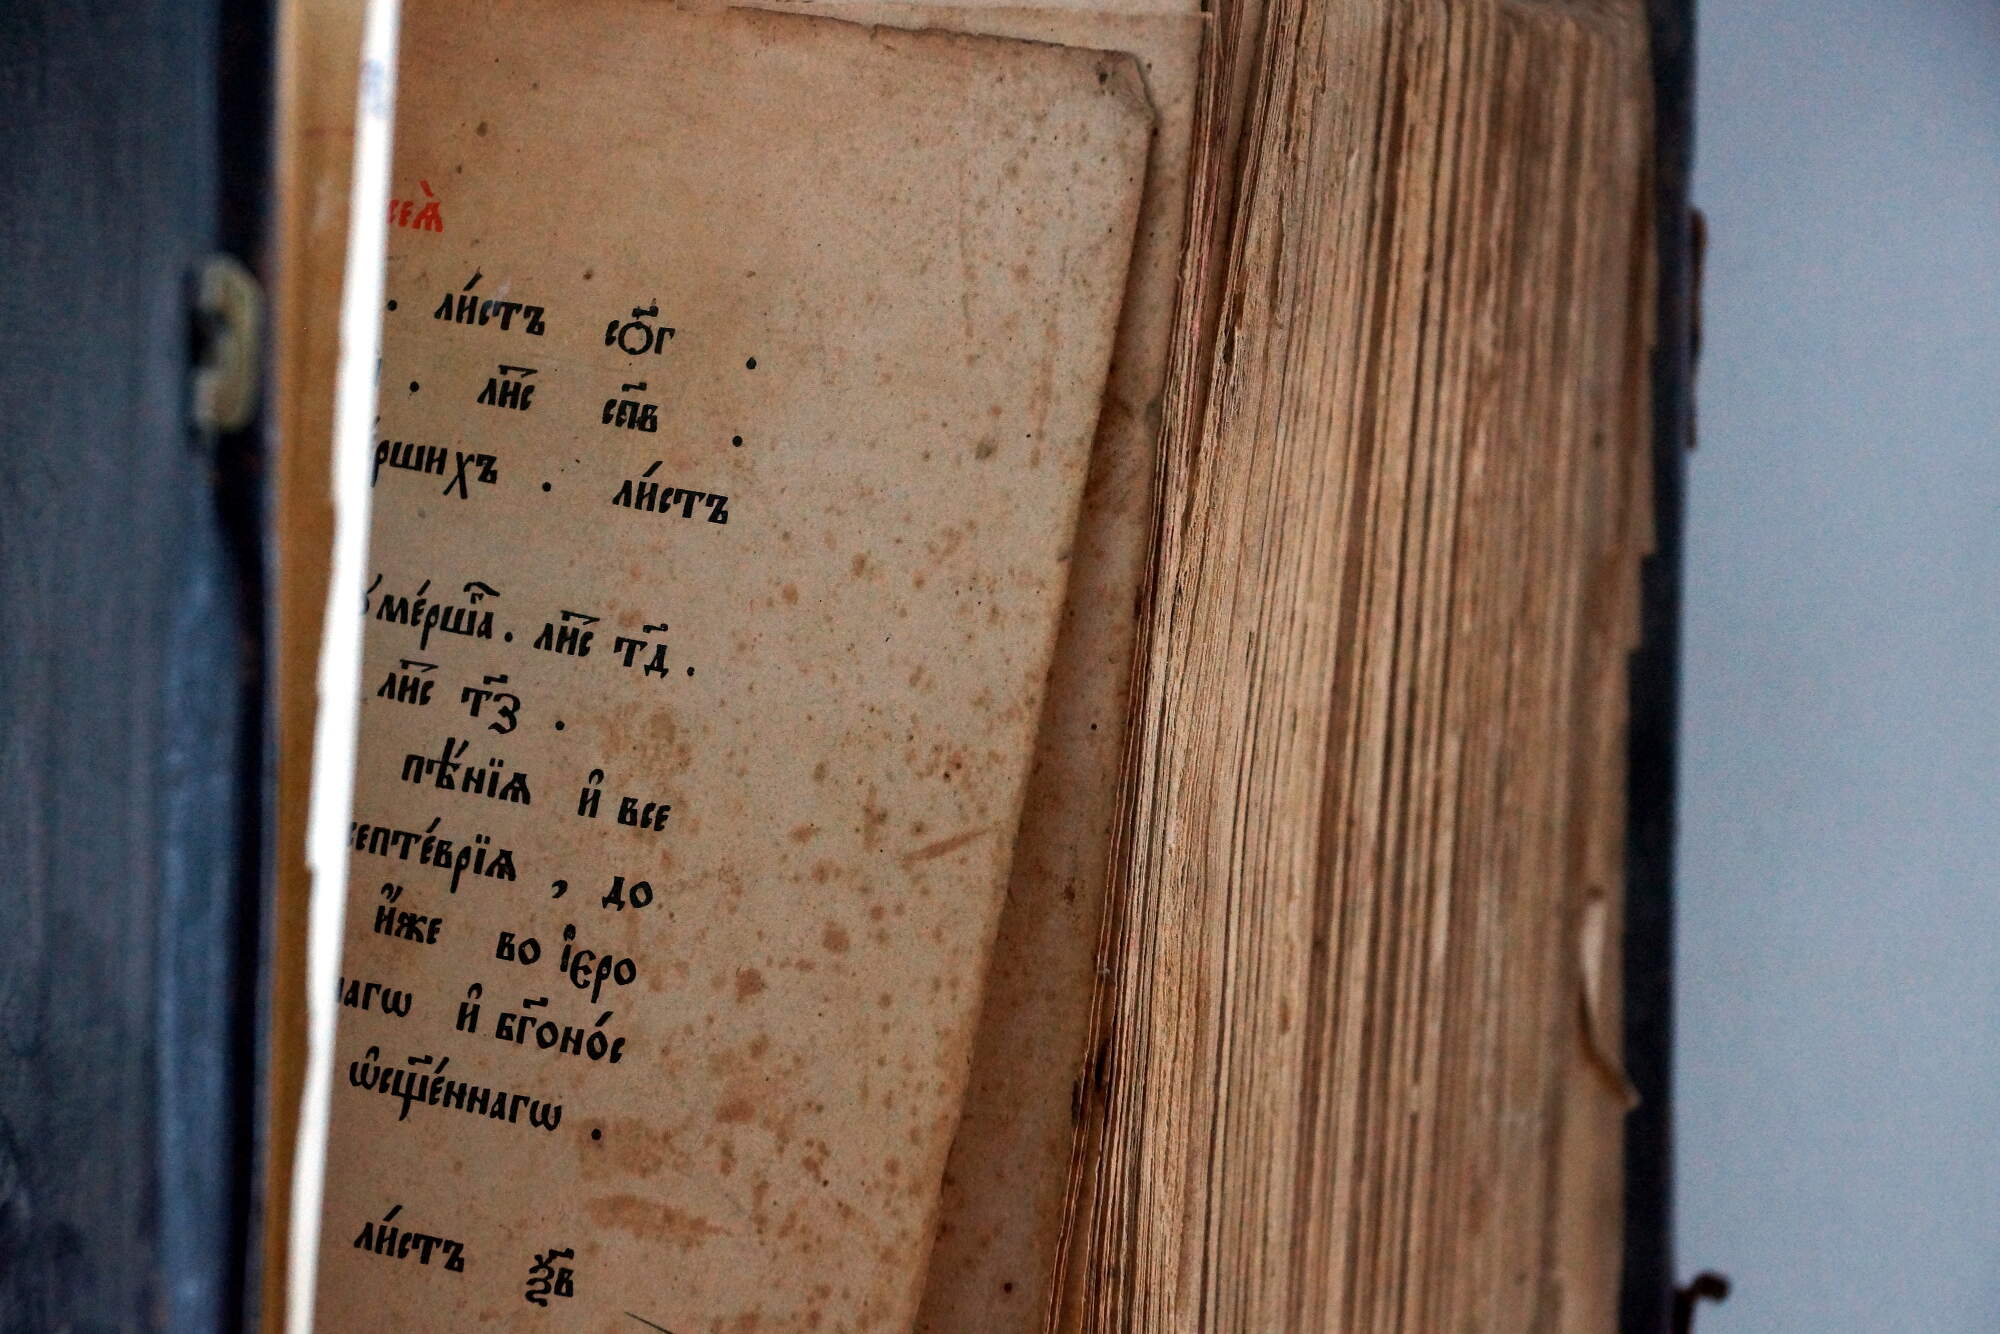 сеѧ̀
. ли́стъ со҃г .
. ли҃с сп҃в .
е́ршихъ . ли́стъ
ꙋме́ршаⷢ҇ . ли҃с т҃д .
ли҃с т҃з .
пѣ́нїѧ и҆ все
септе́врїѧ , до
и҆́же во і҆еро
наго и҆ бг҃оно́с
ѡ҆сщ҃е́ннагѡ .
ли́стъ ѯ҃в